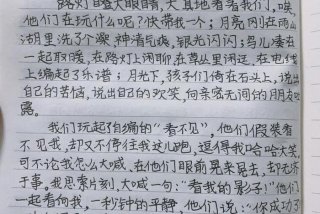 路灯瞪大眼睛,天真地看着我们,唉
他们在玩什么呢?快带我一个;月亮刚在雨山
湖里洗了个澡,神清气爽,银光闪闪;鸟儿凑在
一起取暖,在路灯上闲聊,在草丛里闲逛,在电线
上编起了乐谱;月光下,孩子们倚在石头上,说出
自己的苦恼,说出自己的欢笑,向亲密无间的朋友吐
露。
我们玩起了自编的“看不见”,他们假装看
不见我,却又不停往我这儿跑,逗得我哈哈大笑
可不论我怎么大喊,在他们眼前晃来晃去,却无济
于事。我思索片刻,大喊一句:“看我的影子!”他们
一起看向我,一秒钟的平静,他们说:“你成功了